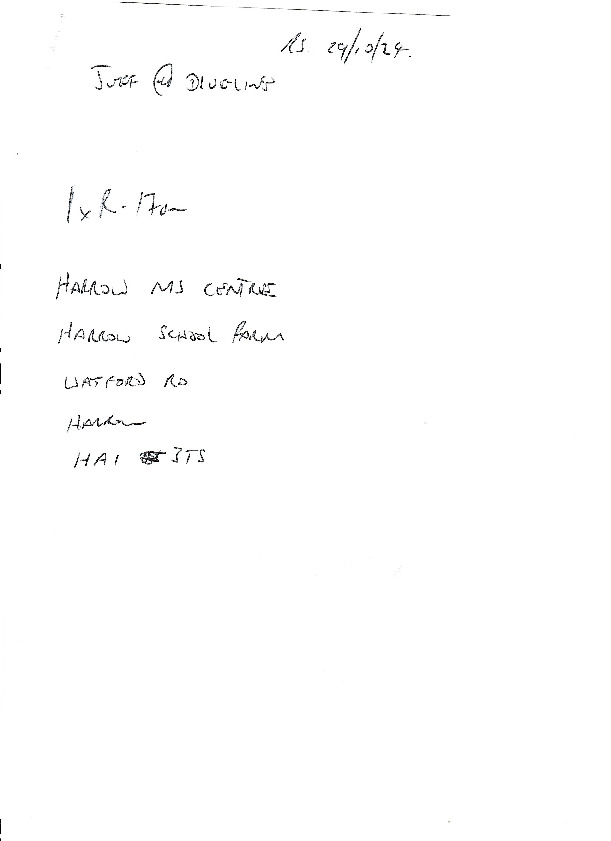 RS 29/10/24.
JEFF @
1 x R-170
HARROW MS CENTRE
HARROW SCHOOL FARM
WATFORD RD
HARROW
HA1 3TS